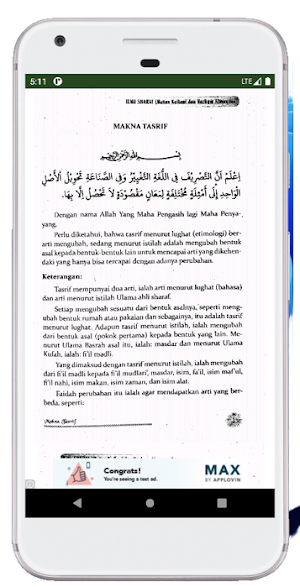 5:11
LTE
ILMU SHARAF (Matan Kailani dan Nazham Almaqsud)
MAKNA TASRIF
بِسْمِ اللهِ الرَّحْمٰنِ الرَّحِيْمِ
اِعْلَمْ اَنَّ التَّصْرِيْفَ فِى اللُّغَةِ التَّغْيِيْرُ وَفِى الصِّنَاعَةِ تَحْوِيْلُ اْلاَصْلِ
الْوَاحِدِ اِلَى اَمْثِلَةٍ مُخْتَلِفَةٍ لِمَعَانٍ مَقْصُوْدَةٍ لاَ تَحْصُلُ اِلاَّ بِهَا.
Dengan nama Allah Yang Maha Pengasih lagi Maha Penya-
yang.
Perlu diketahui, bahwa tasrif menurut lughat (etimologi) ber-
arti mengubah, sedang menurut istilah adalah mengubah bentuk
asal kepada bentuk-bentuk lain untuk mencapai arti yang dikehen-
daki yang hanya bisa tercapai dengan adanya perubahan.
Keterangan:
Tasrif mempunyai dua arti, ialah arti menurut lughat (bahasa)
dan arti menurut istilah Ulama ahli sharaf.
Setiap mengubah sesuatu dari bentuk asalnya, seperti meng-
ubah bentuk rumah atau pakaian dan sebagainya, itu adalah tasrif
menurut lughat. Adapun tasrif menurut istilah, ialah mengubah
dari bentuk asal (pokok pertama) kepada bentuk yang lain. Me-
nurut Ulama Basrah asal itu, ialah: masdar dan menurut Ulama
Kufah, ialah: fi'il madli.
Yang dimaksud dengan tasrif menurut istilah, ialah mengubah
dari fi'il madli kepada fi'il mudlari', masdar, isim, fa'il, isim maf'ul,
fi'il nahi, isim makan, isim zaman, dan isim alat.
Faidah perubahan itu ialah agar mendapatkan arti yang ber-
beda, seperti:
(Makna Tasrif)
Congrats!
You're seeing a test ad.
MAX
BY APPLOVIN